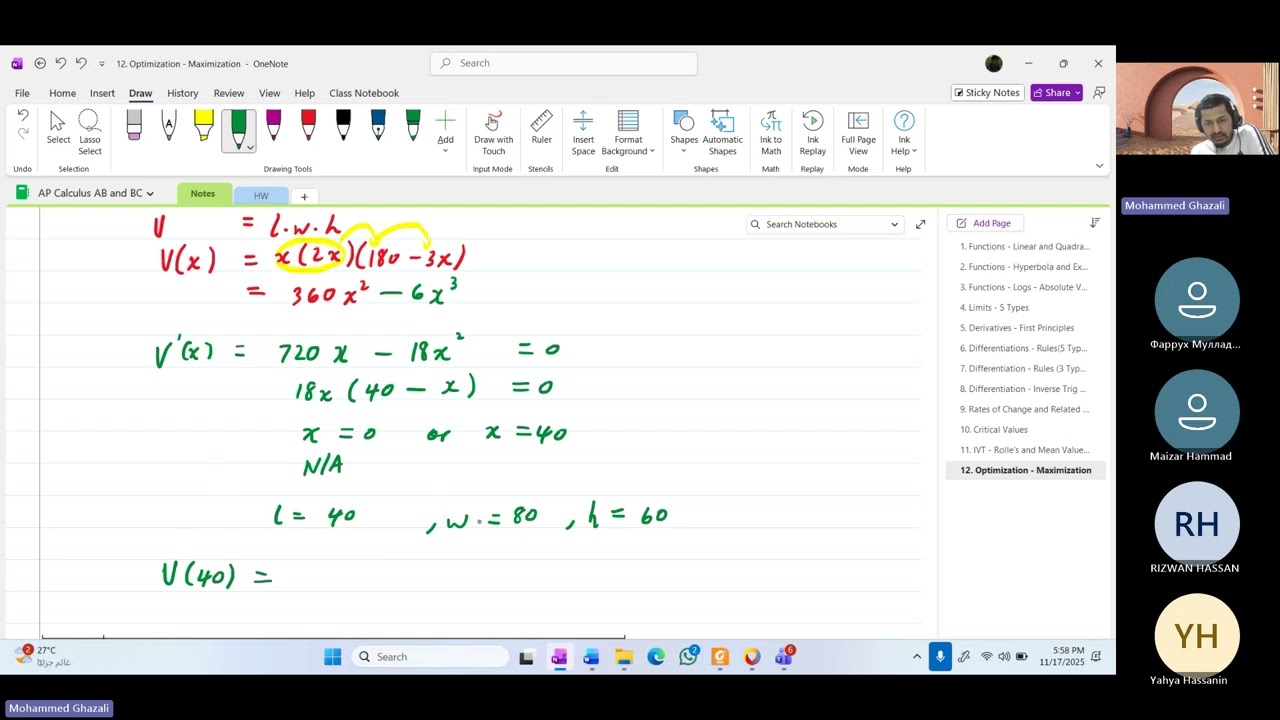 12. Optimization - Maximization - OneNote
Search
File Home Insert Draw History Review View Help Class Notebook
Sticky Notes Share
Select Lasso Select Add Draw with Touch Ruler Insert Space Format Background Shapes Automatic Shapes Ink to Math Ink Replay Full Page View Ink Help
Undo Selection Drawing Tools Input Mode Stencils Edit Shapes Math Replay Mode Help
AP Calculus AB and BC Notes HW +
Search Notebooks
Add Page
V = l.w.h
V(x) = x(2x)(180 - 3x)
= 360x² - 6x³
V'(x) = 720x - 18x² = 0
18x(40 - x) = 0
x = 0 or x = 40
N/A
l = 40 , w = 80 , h = 60
V(40) =
1. Functions - Linear and Quadra...
2. Functions - Hyperbola and Ex...
3. Functions - Logs - Absolute V...
4. Limits - 5 Types
5. Derivatives - First Principles
6. Differentiations - Rules(5 Typ...
7. Differentiation - Rules (3 Typ...
8. Differentiation - Inverse Trig ...
9. Rates of Change and Related ...
10. Critical Values
11. IVT - Rolle's and Mean Value...
12. Optimization - Maximization
Mohammed Ghazali
Фаррух Муллад...
Maizar Hammad
RH
RIZWAN HASSAN
YH
Yahya Hassanin
2
27°C
غائم جزئيًا
Search
2
6
5:58 PM
11/17/2025
Mohammed Ghazali